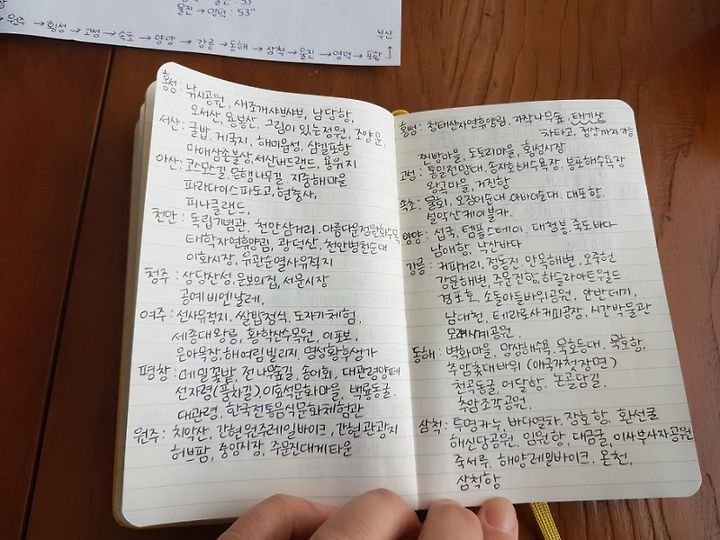 울진 → 영덕 : 53"
원주 → 횡성 → 고성 → 속초 → 양양 → 강릉 → 동해 → 삼척 → 울진 → 영덕 → 포항 → 부산
홍성 : 낚시공원, 새조개샤브샤브, 남당항,
오서산, 용봉산, 그림이 있는정원, 조양문,
서산 : 굴밥, 게국지, 해미읍성, 삼길포항
마애삼존불상, 서산버드랜드, 용유지
아산 : 코스모스길, 은행나무길, 지중해마을
파라다이스파도고, 현충사,
피나클랜드,
천안 : 독립기념관, 천안삼거리, 아름다운정원화수목
태학자연휴양림, 광덕산, 천안병천순대
이화시장, 유관순열사유적지
청주 : 상당산성, 운보의집, 서문시장
공예비엔날레,
여주 : 선사유적지, 쌀밥정식, 도자기체험,
세종대왕릉, 황학산수목원, 이포보,
은아목장, 해여림빌리지, 명성황후생가
평창 : 메밀꽃밭, 전나무숲길, 송어회, 대관령양떼
선자령(풍차길), 이효석문화마을, 백룡동굴,
대관령, 한국전통음식문화체험관
원주 : 치악산, 간현원주레일바이크, 간현관광지
허브팜, 중앙시장, 주문진대게타운
횡성 : 청태산자연휴양림, 자작나무숲, 태기산
차타고, 정상까지가능
찐빵마을, 도토리마을, 횡성시장
고성 : 통일전망대, 봉포해수욕장
왕곡마을, 거진항
속초 : 물회, 오징어순대, 아바이순대, 대포항,
설악산케이블카.
양양 : 섭국, 템플스테이, 대청봉, 죽도바다
남애항, 낙산바다
강릉 : 커피거리, 정동진, 안목해변, 오죽헌
강문해변, 주문진항, 하슬라아트월드
경포호, 소돌아들바위공원, 안반데기,
남대천, 테라로사커피공장, 시간박물관
모래시계공원.
동해 : 벽화마을, 망상해수욕, 묵호등대, 묵호항,
추암촛대바위 (애국가첫장면)
천곡동굴, 어달항, 논골담길,
추암조각공원,
삼척 : 투명카누, 바다열차, 장호항, 환선굴
해신당공원, 임원항, 대금굴, 이사부사자공원
죽서루, 해양레일바이크, 온천,
삼척항